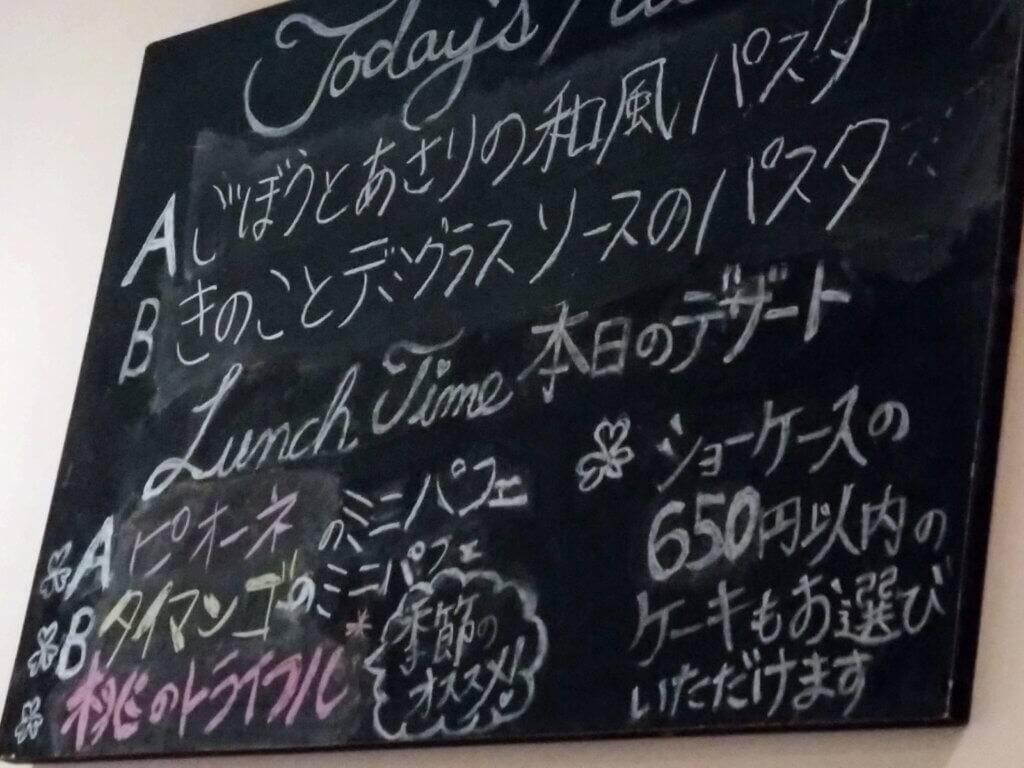 Today's
A ごぼうとあさりの和風パスタ
B きのことデミグラスソースのパスタ
Lunch Time 本日のデザート
A ピオーネのミニパフェ
B タイマンゴのミニパフェ
桃のトライフル
季節の
オススメ!
ショーケースの
650円以内の
ケーキもお選び
いただけます